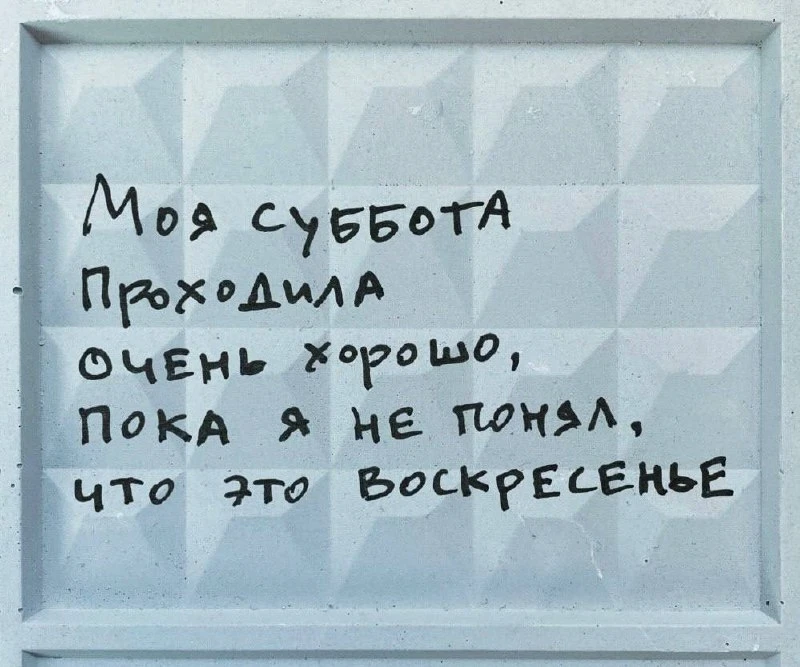 Моя суббота
проходила
очень хорошо,
пока я не понял,
что это воскресенье